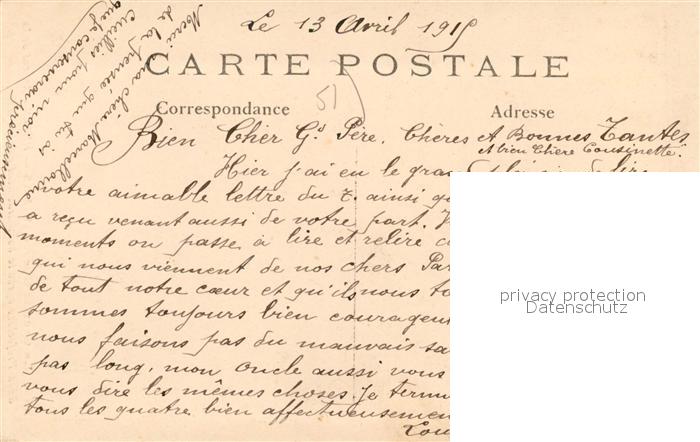 Le 13 Avril 1915
CARTE POSTALE
Correspondance
51
Adresse
Bien Cher Gd Père, Chères et Bonnes Tantes
et bien Chère Cousinette.
Hier j'ai eu le gran
votre aimable lettre du 7. ainsi
a reçu venant aussi de votre part.
moments on passe à lire et relire
qui nous viennent de nos chers Par
de tout notre cœur et qu'ils nous
sommes toujours bien courageu
nous faisons pas du mauvais sa
pas long, mon Oncle aussi vous
vous dire les mêmes choses. Je termi
tous les quatre bien affectueusemen
Lou
Merci ma chère
de la pensée que tu as
cueillie pour moi
que je conserverai précieusement
privacy protection
Datenschutz